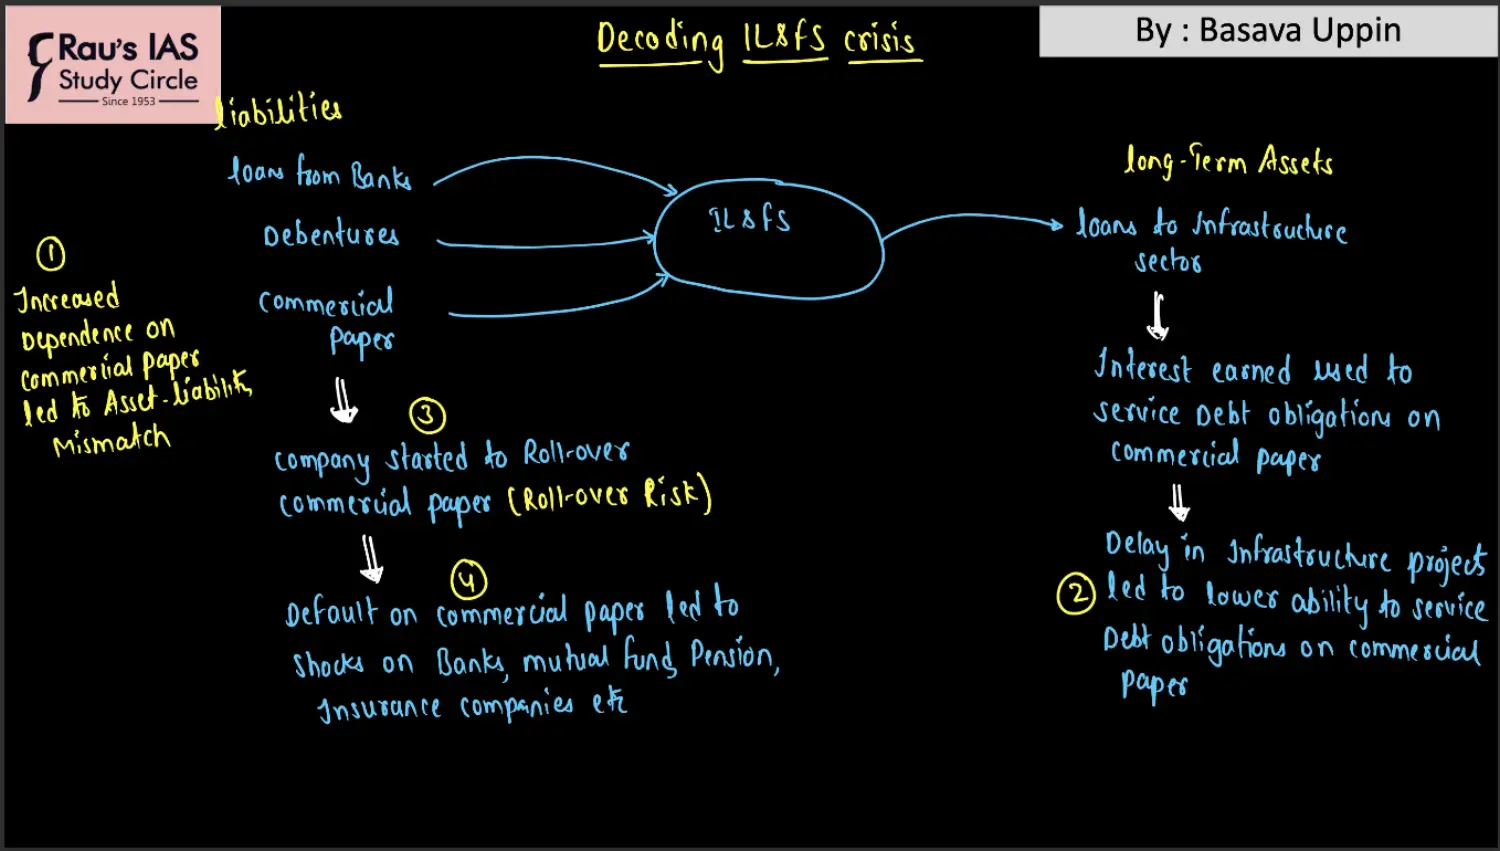 Rau's IAS
Study Circle
Since 1953
Decoding IL&FS crisis
By : Basava Uppin
Liabilities
Loans from Banks
Debentures
Commercial
Paper
IL&FS
Long-Term Assets
Loans to Infrastructure
sector
Interest earned used to
service Debt obligations on
commercial paper
Delay in Infrastructure projects
2 led to lower ability to service
Debt obligations on commercial
paper
1
Increased
Dependence on
commercial paper
led to Asset-Liability
Mismatch
3
Company started to Roll-over
commercial paper (Roll-over Risk)
4
Default on commercial paper led to
shocks on Banks, mutual fund, Pension,
Insurance companies etc